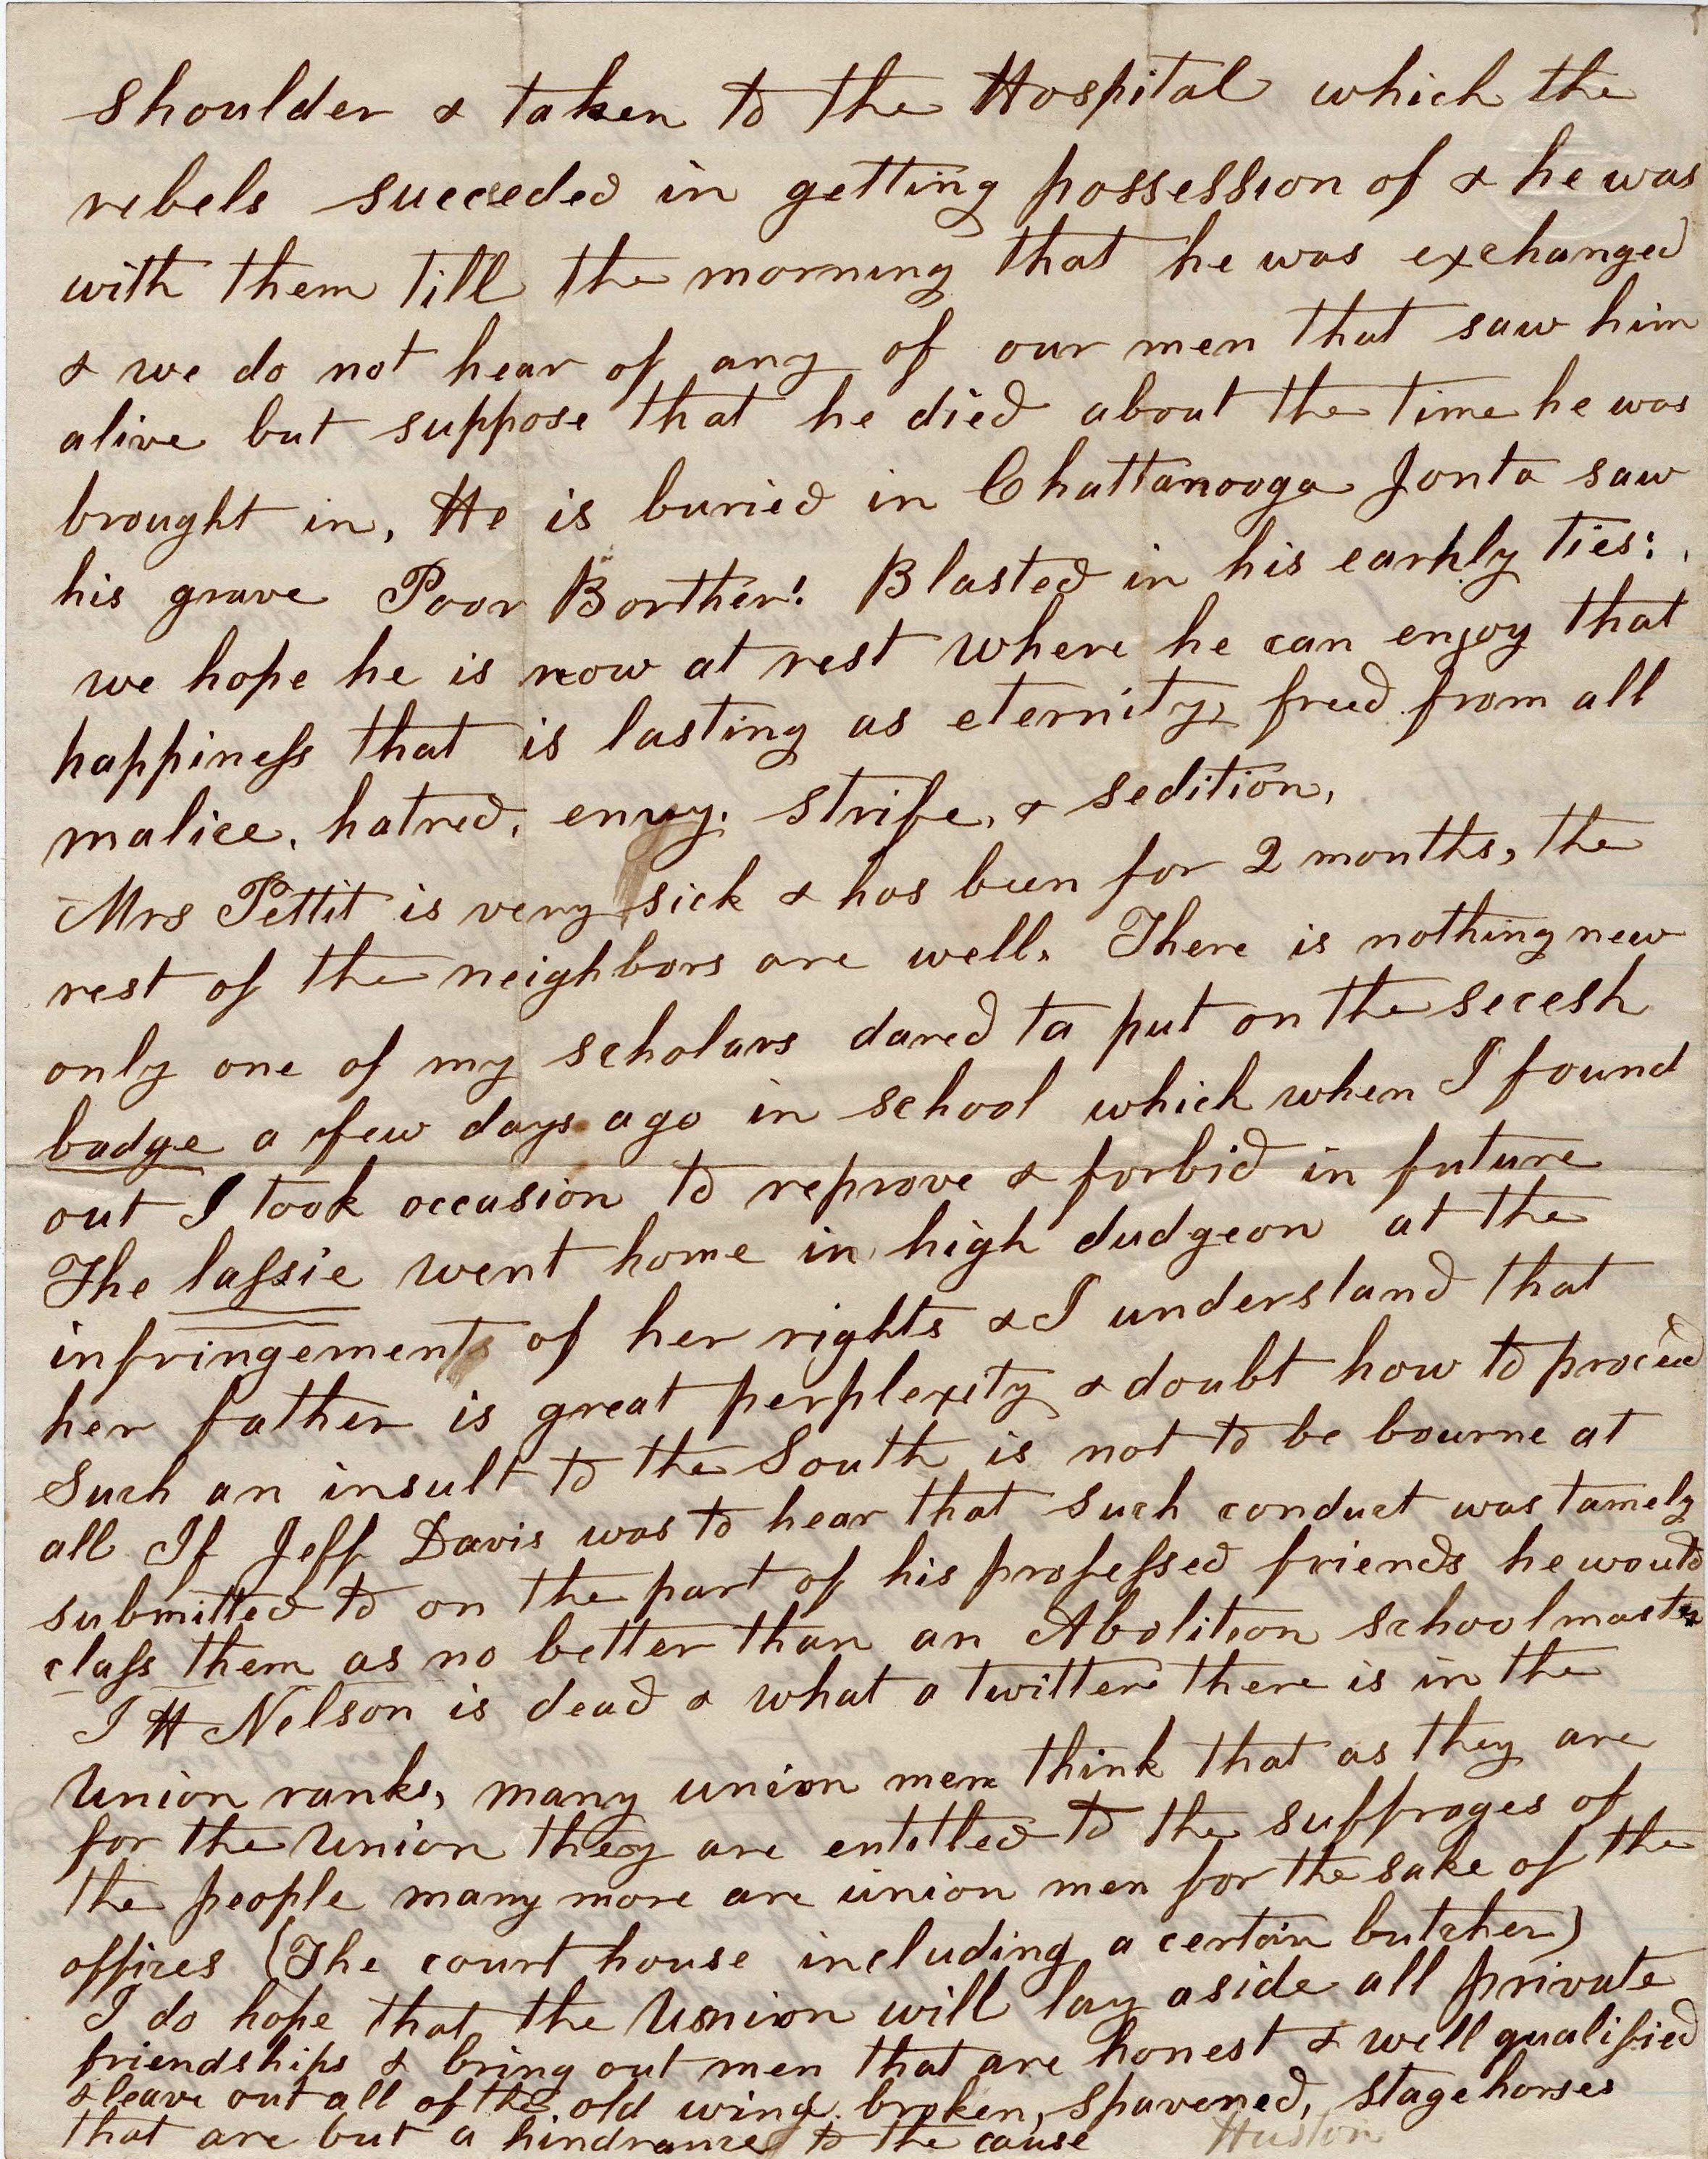 shoulder & taken to the Hospital which the
rebels succeded in getting possession of & he was
with them till the morning that he was exchanged
& we do not hear of any of our men that saw him
alive but suppose that he died about the time he was
brought in, He is buried in Chattanooga Jonta saw
his grave Poor Borther! Blasted in his earhly ties:
we hope he is now at rest where he can enjoy that
happiness that is lasting as eternity, freed from all
malice, hatred, envy, strife, & sedition,
Mrs Pettit is very sick & has been for 2 months, the
rest of the neighbors are well. There is nothing new
only one of my scholars dared to put on the secesh
badge a few days ago in school which when I found
out I took occasion to reprove & forbid in future
The lassie went home in high dudgeon at the
infringements of her rights & I understand that
her father is great perplexity & doubt how to proceed
Such an insult to the South is not to be bourne at
all If Jeff Davis was to hear that such conduct was tamely
submitted to on the part of his professed friends he would
class them as no better than an Abolition schoolmaster
I H Nelson is dead & what a twitter there is in the
Union ranks, many union men think that as they are
for the Union they are entitled to the suffrages of
the people many more are union men for the sake of the
offices (The court house including a certain butcher)
I do hope that the Union will lay aside all private
friendships & bring out men that are honest & well qualified
& leave out all of the old wing broken, spavened, stage horses
that are but a hindrance to the cause Huston